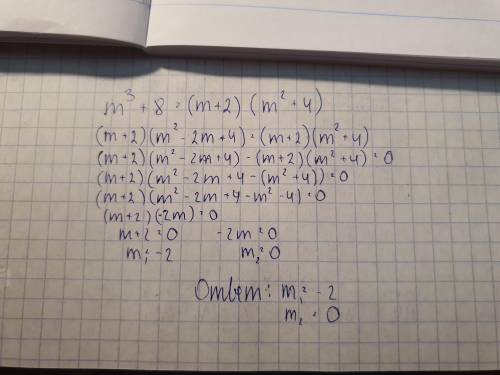 m³ + 8 = (m+2) (m² + 4)
(m+2)(m² - 2m + 4) = (m+2)(m² + 4)
(m+2)(m² - 2m + 4) - (m+2)(m² + 4) = 0
(m+2)(m² - 2m + 4 - (m² + 4)) = 0
(m+2)(m² - 2m + 4 - m² - 4) = 0
(m+2)(-2m) = 0
m + 2 = 0 -2m = 0
m₁ = -2 m₂ = 0
Ответ: m₁ = -2
m₂ = 0